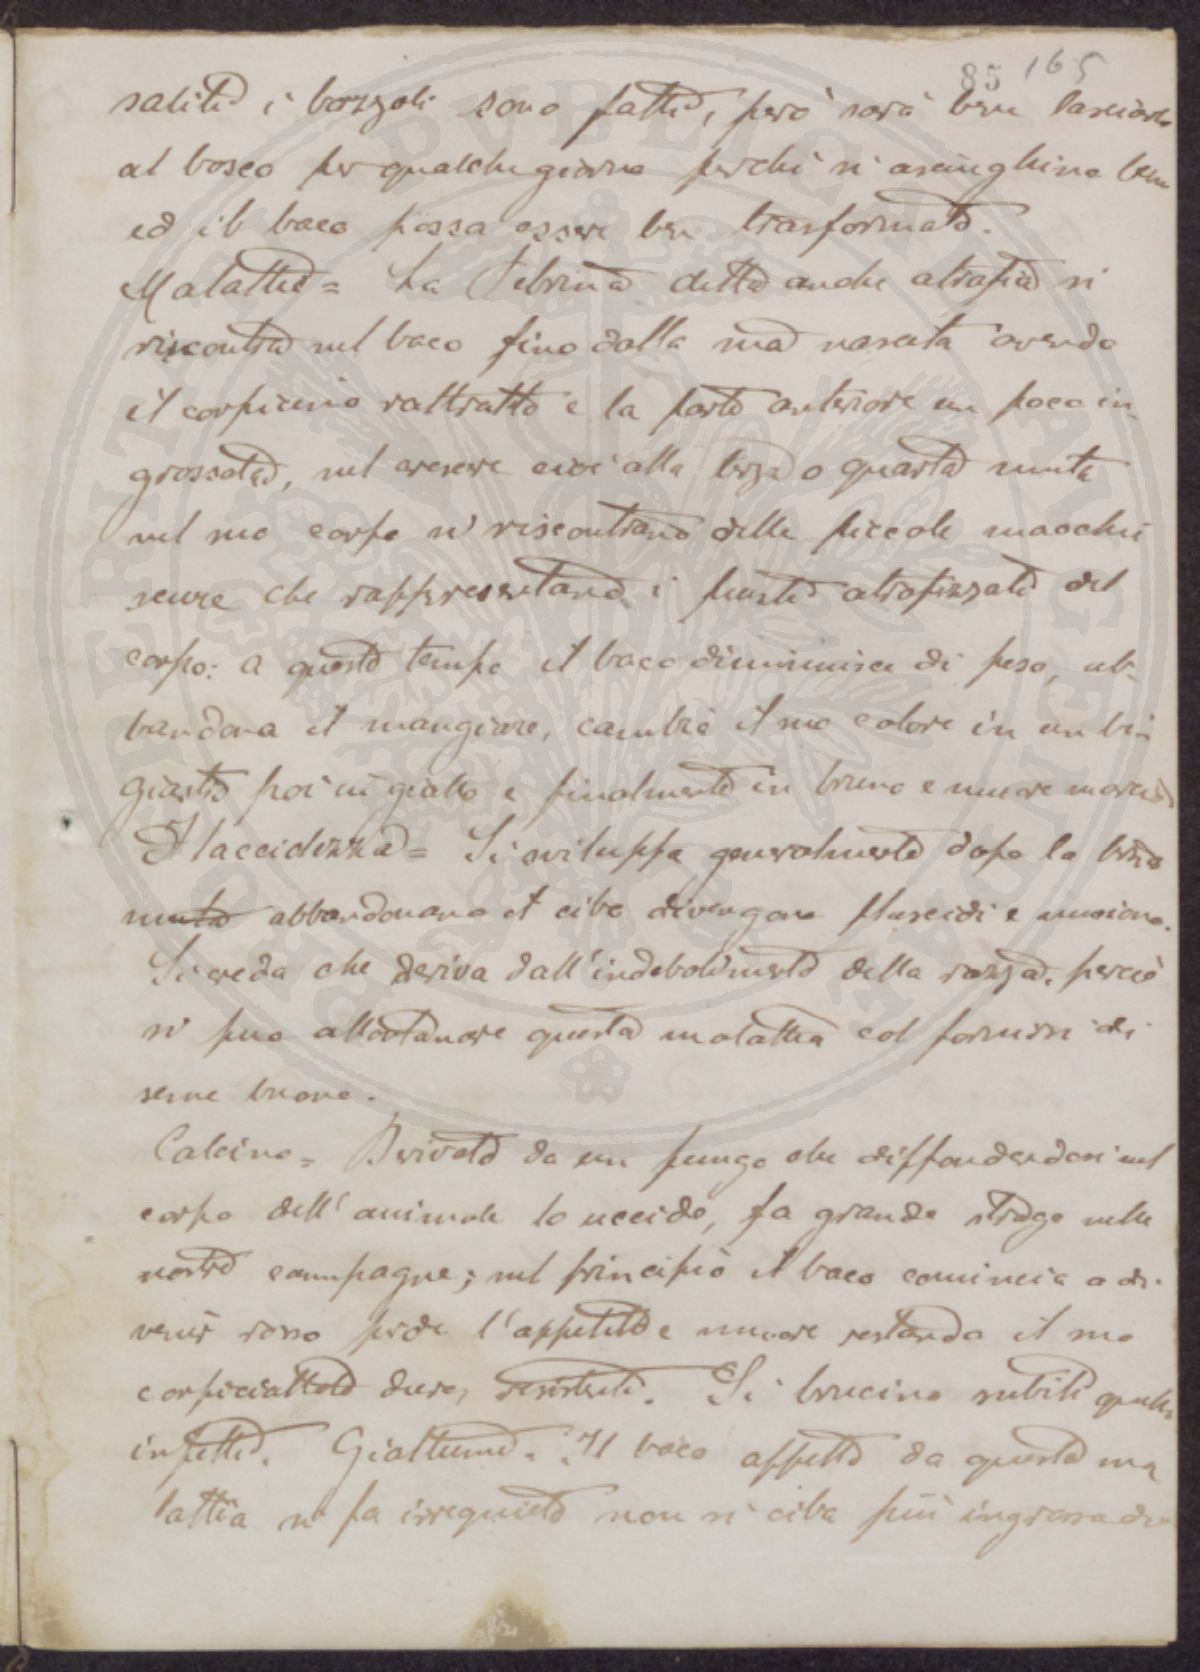 85 165
saliti i bozzoli sono fatti, però sarà bene lasciarli
al bosco per qualche giorno perchè si asciughino bene
ed il baco possa essere ben trasformato.
Malattie = La Pebrina detta anche atrofia si
riscontra nel baco fino dalla sua nascita avendo
il corpicino rattratto e la parte anteriore un poco in-
grossata, nel crescere cioè alla terza o quarta muta
nel suo corpo si riscontrano delle piccole macchie
scure che rappresentano i punti atrofizzati del
corpo: a questo tempo il baco diminuisce di peso, ab-
bandona il mangiare, cambia il suo colore in un bi-
giastro poi in giallo e finalmente in bruno e muore
Flaccidezza = Si sviluppa generalmente dopo la terza
muta abbandonano il cibo divengono flaccidi e muoiono.
Si creda che deriva dall'indebolimento della razza, perciò
si può allontanare questa malattia col fornirsi di
seme buono.
Calcino = Derivato da un fungo che diffondendosi nel
corpo dell'animale lo uccide, fa grande strage nelle
nostre campagne; nel principio il baco comincia a di-
venir rosso perde l'appetito e muore restando il suo
corpicciattolo duro, resistente. Si brucino subito quelli
infetti. Giallume = Il baco affetto da questa ma
lattia si fa irrequieto non si ciba più ingrossa
PROPRIETÀ PUBLIC